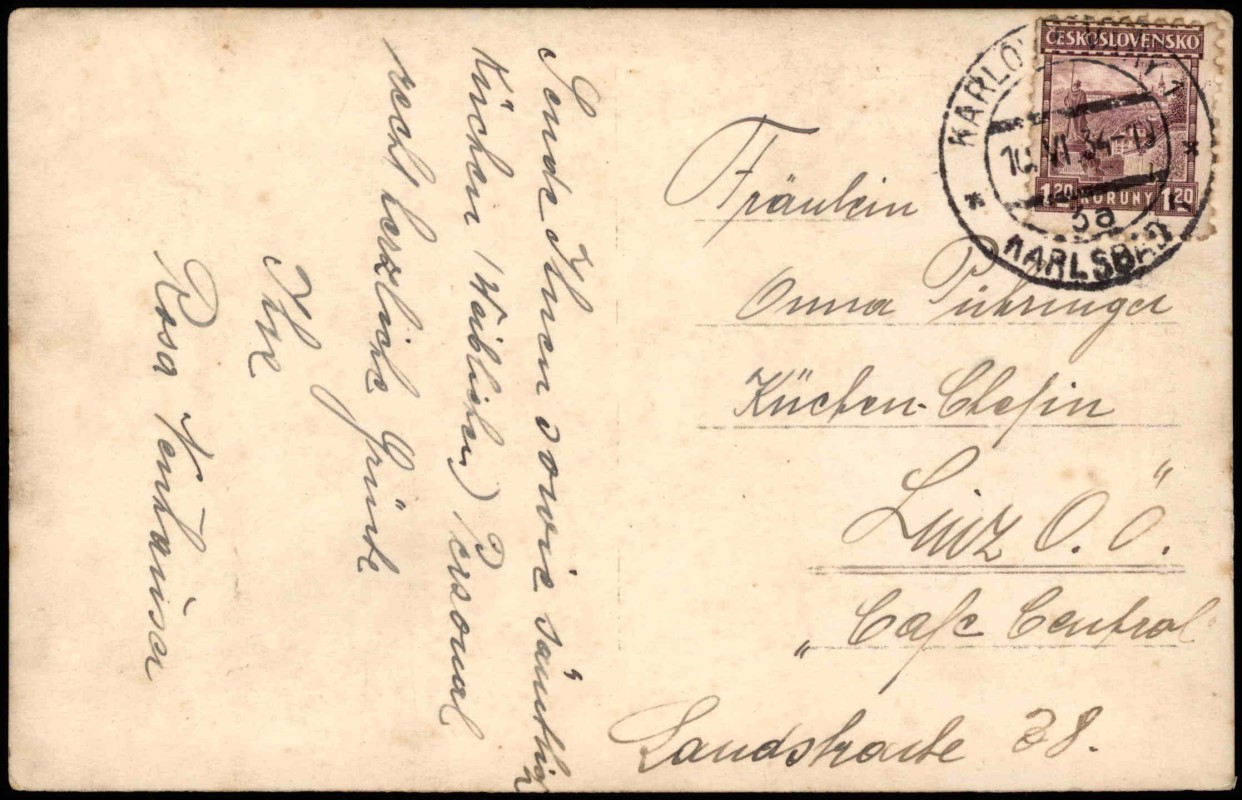 Sende Ihnen sowie sämtlich
Küchen (Weiblichen) Personal
recht herzliche Grüße
Ihre
Rosa
ČESKOSLOVENSKO
1.20 KORUNY 1.20
KARLOVY VARY 1
10.VI.34-19
5a
* KARLSBAD *
Fräulein
Anna Pühringer
Küchen-Chefin
Linz O. Ö.
„Cafe Central"
Landstraße 38.